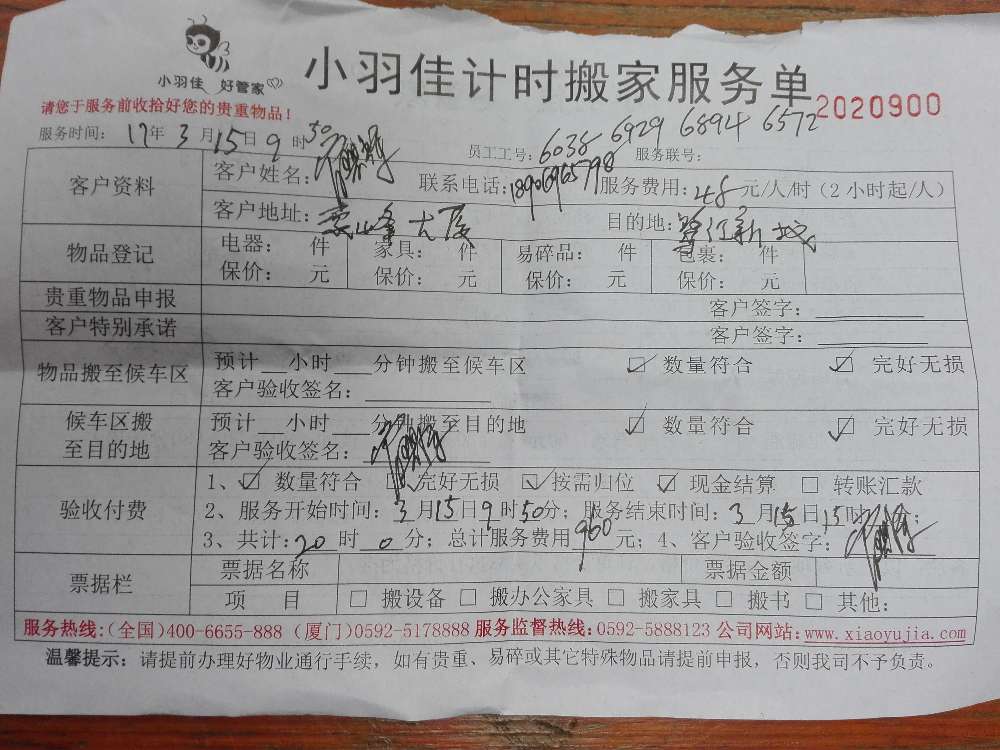 小羽佳 好管家
小羽佳计时搬家服务单
2020900
请您于服务前收拾好您的贵重物品!
服务时间: 17年 3月 15日 9时 50
员工工号: 6038 6929 6894 6572 服务联号:
客户资料
客户姓名: 联系电话: 服务费用: 48 元/人/时 (2小时起/人)
客户地址: 大厦 目的地: 新城
物品登记
电器: 件 家具: 件 易碎品: 件 包裹: 件
保价: 元 保价: 元 保价: 元 保价: 元
贵重物品申报 客户签字:
客户特别承诺 客户签字:
物品搬至候车区
预计 小时 分钟搬至候车区 数量符合 完好无损
客户验收签名:
候车区搬至目的地
预计 小时 分钟搬至目的地 数量符合 完好无损
客户验收签名:
验收付费
1、 数量符合 完好无损 按需归位 现金结算 转账汇款
2、服务开始时间: 3月15日9时50分; 服务结束时间: 3月15日15时 分;
3、共计: 20时0分; 总计服务费用960元; 4、客户验收签字:
票据栏
票据名称 票据金额
项 目 搬设备 搬办公家具 搬家具 搬书 其他:
服务热线:(全国)400-6655-888 (厦门)0592-5178888 服务监督热线:0592-5888123 公司网站:www.xiaoyujia.com
温馨提示: 请提前办理好物业通行手续, 如有贵重、易碎或其它特殊物品请提前申报, 否则我司不予负责。